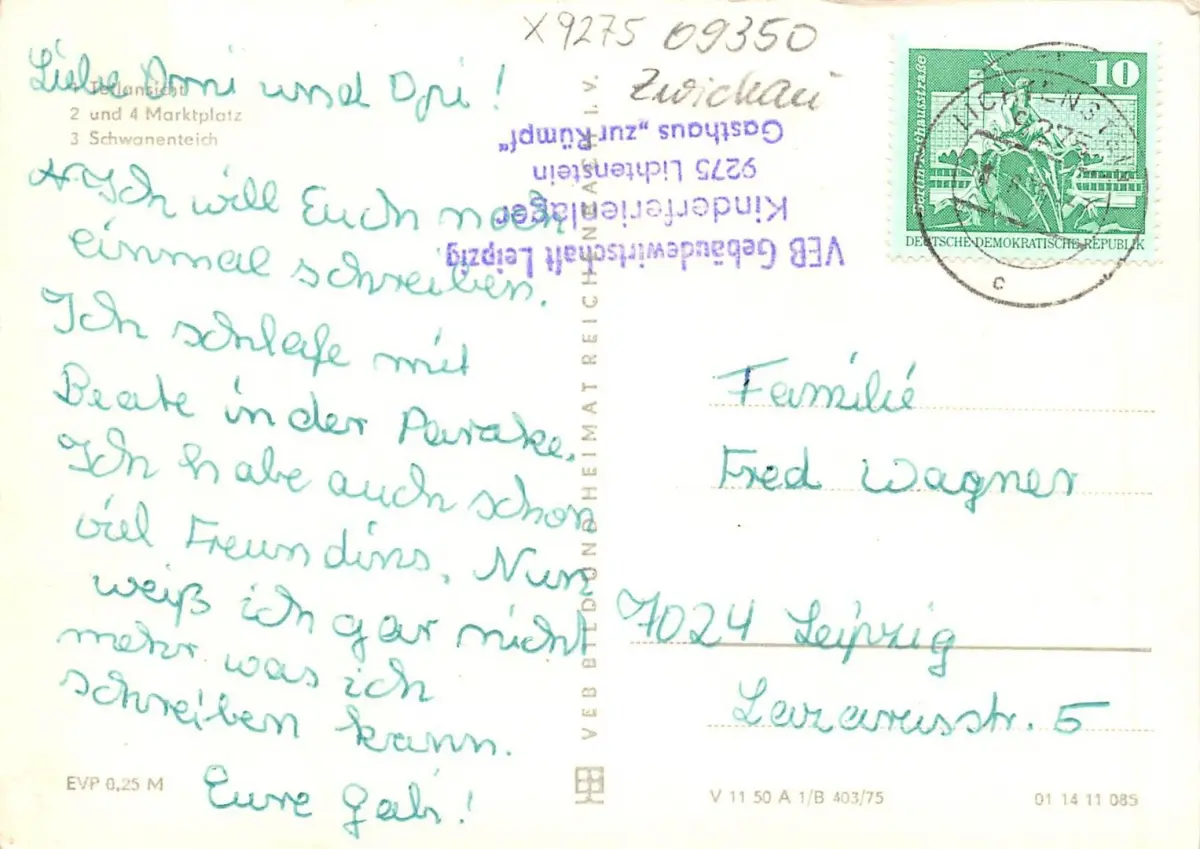 X9275 09350
Zwickau
Liebe Omi und Opi!
1 Teilansicht
2 und 4 Marktplatz
3 Schwanenteich
Ich will Euch noch
einmal schreiben.
Ich schlafe mit
Beate in der Parake.
Ich habe auch schon
viel Freundins. Nun
weiß ich gar nicht
mehr was ich
schreiben kann.
Eure Gabi!
EVP 0,25 M
VEB BILD UND HEIMAT REICHENBACH I. V.
VEB Gebäudewirtschaft Leipzig
Kinderferienlager
9275 Lichtenstein
Gasthaus „zur Rümpf"
10
DEUTSCHE DEMOKRATISCHE REPUBLIK
LICHTENSTEIN
9275
c
Familie
Fred Wagner
7024 Leipzig
Lazarusstr. 5
V 11 50 A 1/B 403/75
01 14 11 085